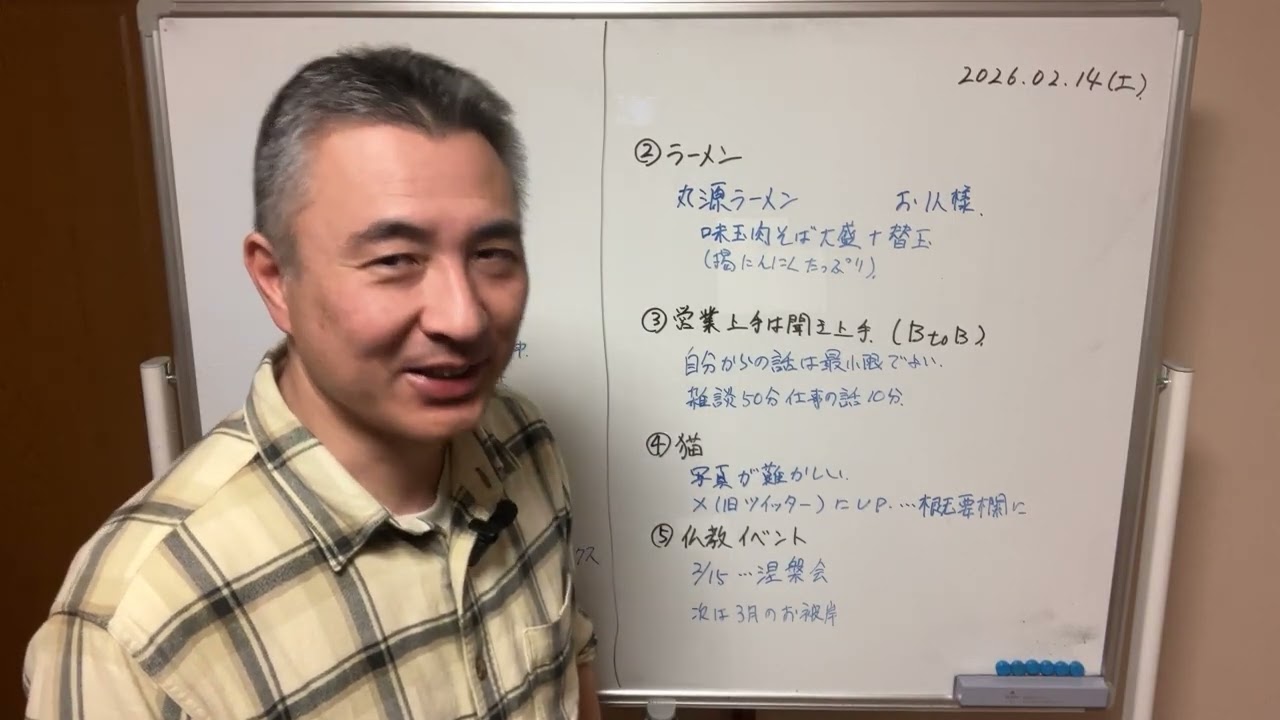 2026.02.14(土)
② ラーメン
丸源ラーメン お仏様
味玉肉そば大盛+替玉
(揚にんにくたっぷり)
③ 営業上手は聞き上手 (BtoB)
自分からの話は最小限でよい
雑談50分仕事の話10分
④ 猫
写真が難かしい
X(旧ツイッター)にUP…概要欄に
⑤ 仏教イベント
2/15…涅槃会
次は3月のお彼岸
中.
クス